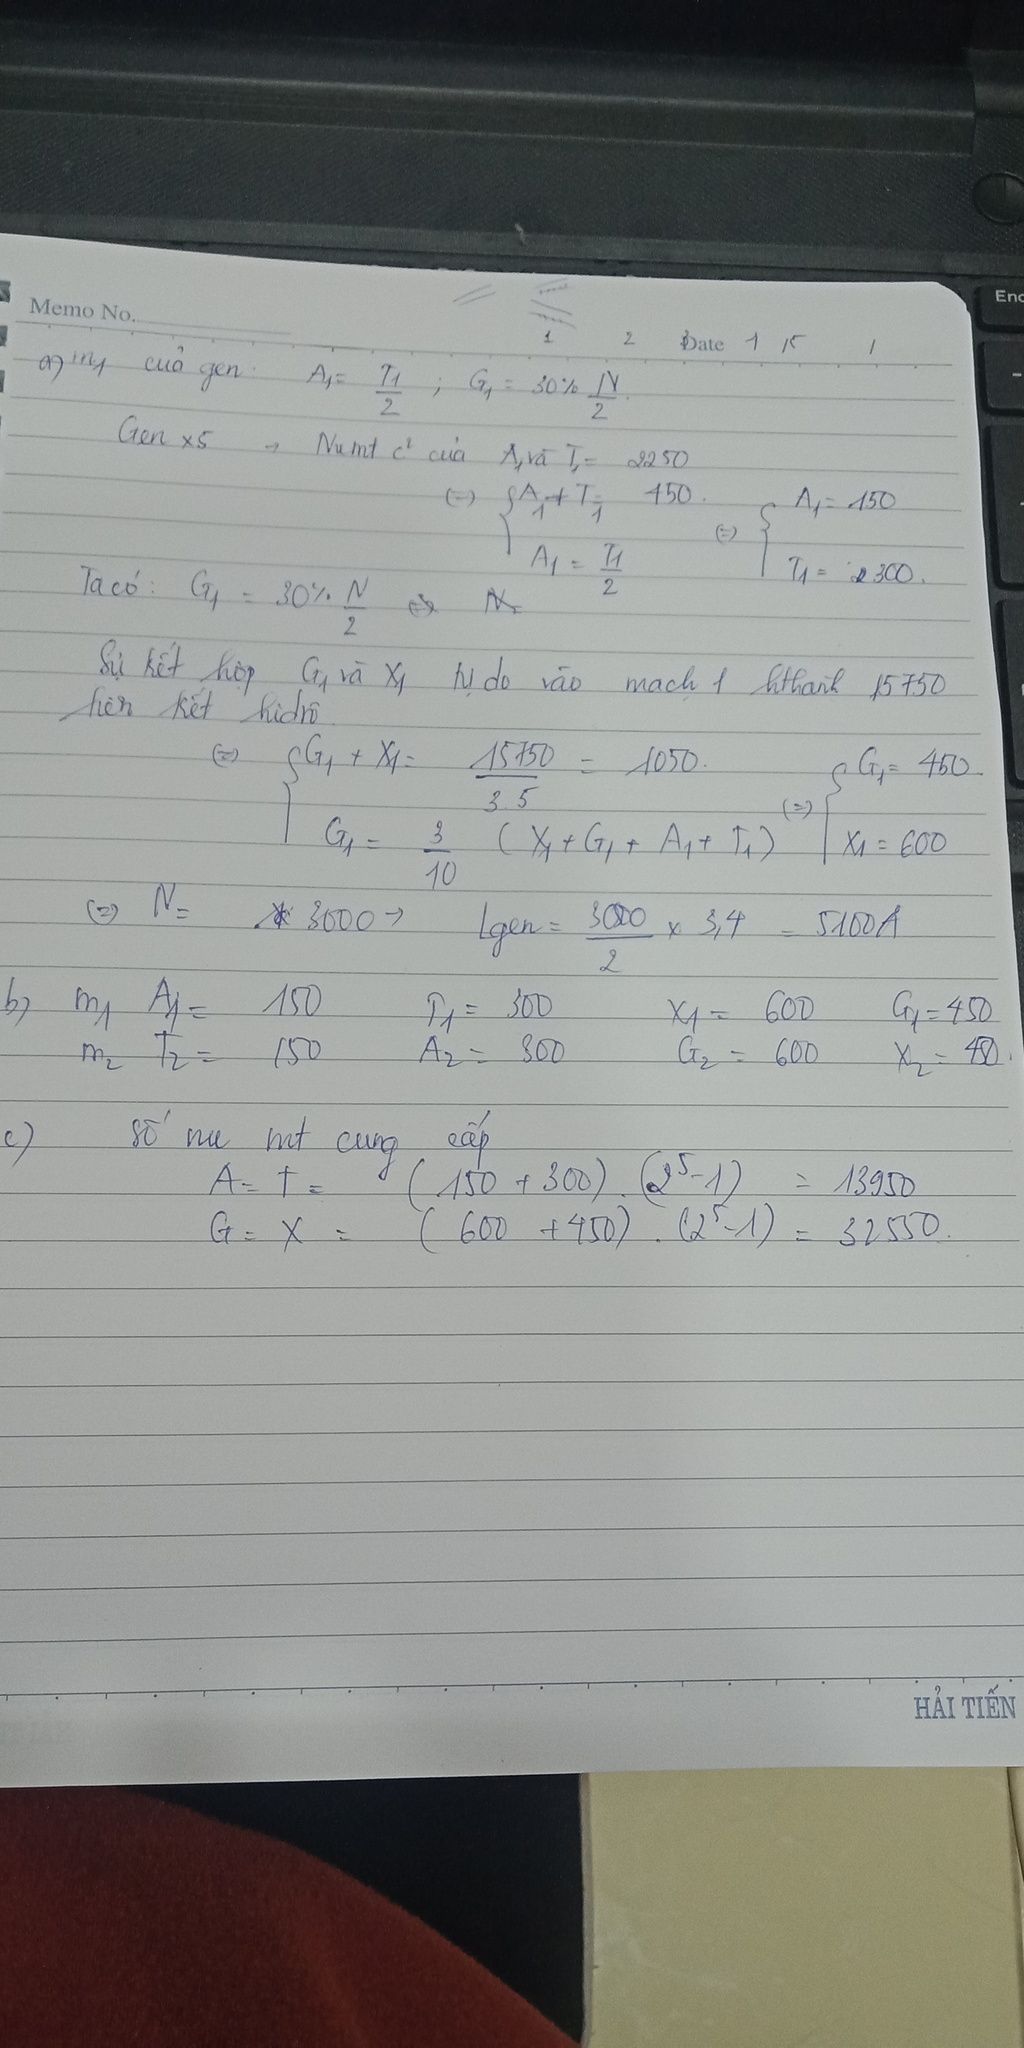 Memo No.
1 2 3 Date 1 15 1
End
a) m1 của gen: A1 = T1/2 ; G1 = 30% N/2
Gen x5 → Numt c² của A1 và T1 = 2250
(=) { A1 + T1 = 450. (=) { A1 = 150
A1 = T1/2 T1 = 300.
Ta có: G1 = 30% N/2 (=) N =
Sự kết hợp G1 và X1 tự do vào mạch 1 hthanh 15750
liên kết hidrô
(=) { G1 + X1 = 15750/3.5 = 1050. (=) { G1 = 450
G1 = 3/10 (X1 + G1 + A1 + T1) X1 = 600
(=) N = 3000 → Lgen = 3000/2 x 3,4 = 5100A
b) m1 A1 = 150 T1 = 300 X1 = 600 G1 = 450
m2 T2 = 150 A2 = 300 G2 = 600 X2 = 450.
c) số nu mt cung cấp
A = T = (150 + 300) . (2⁵-1) = 13950
G = X = (600 + 450) . (2⁵-1) = 32550.
HẢI TIẾN